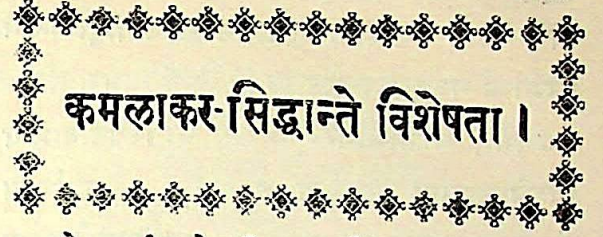 कमलाकर-सिद्धान्ते विशेषता ।